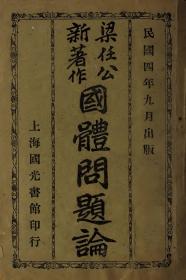 民國四年九月出版
梁任公
新著作
國體問題論
上海國光書館印行